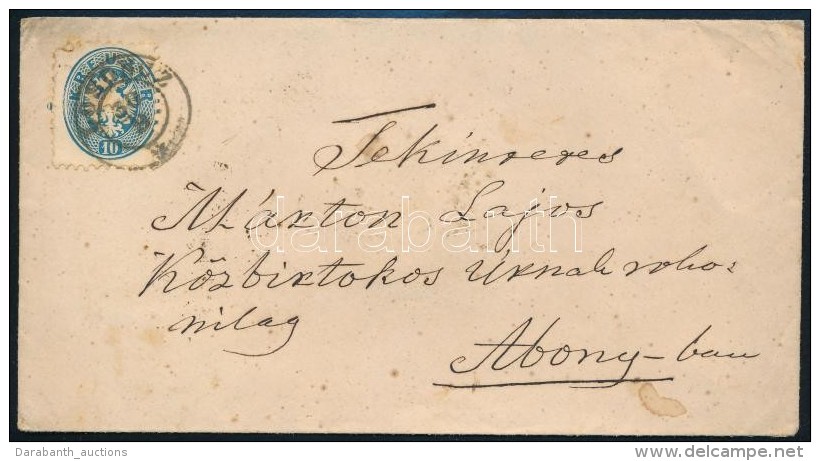 KREUZER
10
Tekintetes
Márton Lajos
Közbirtokos Úrnak roko:
nilag
Abony-ban
darabanth
Darabanth_auctions
www.delcampe.net